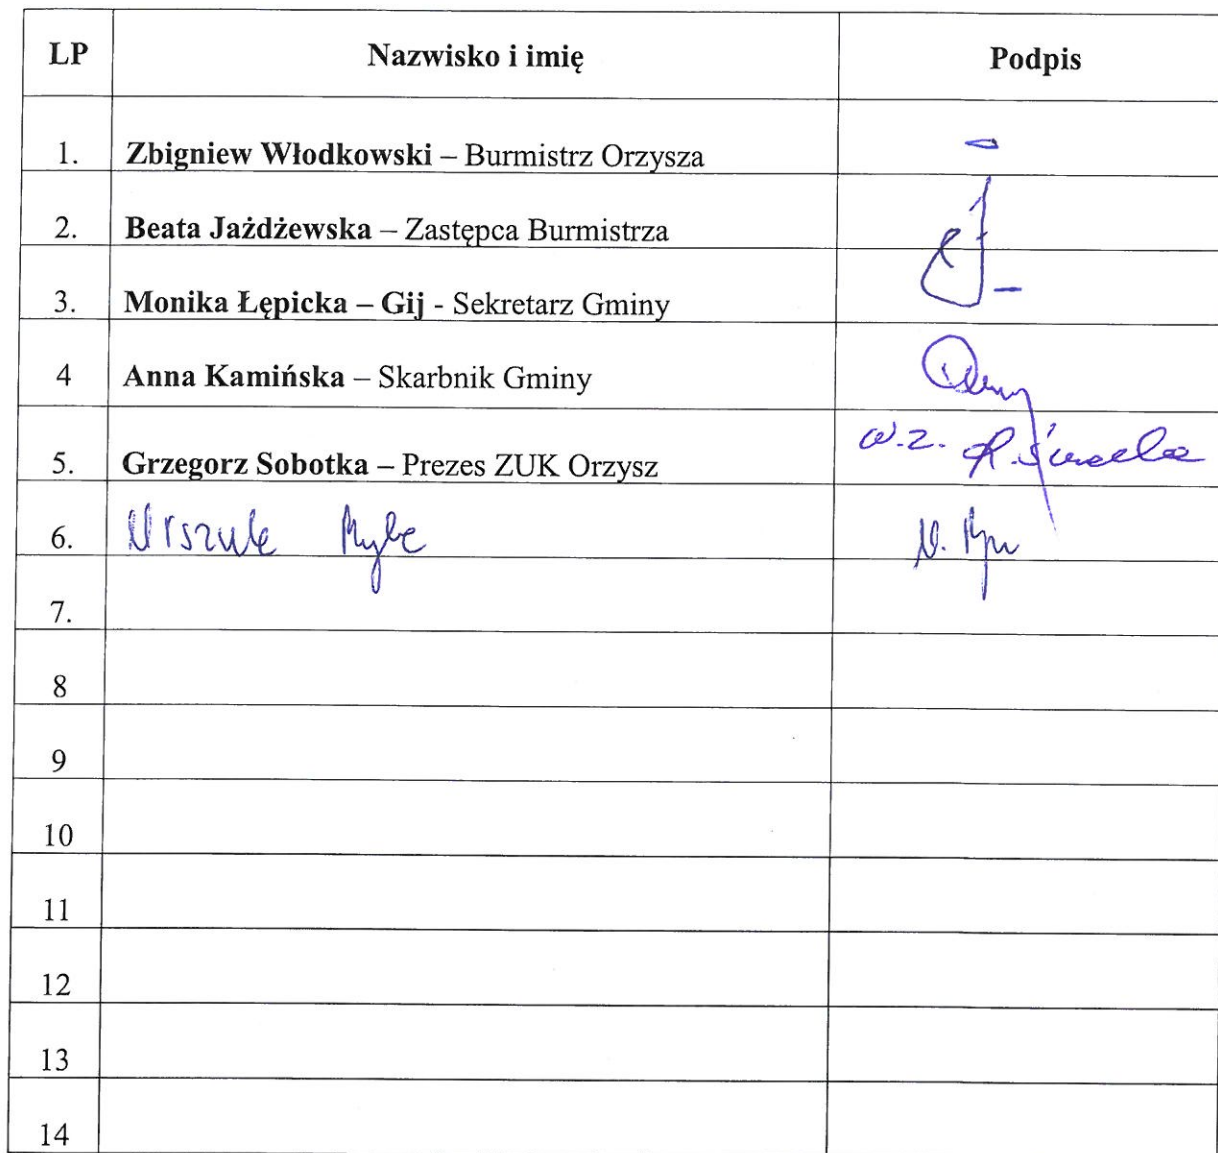 LP Nazwisko i imię Podpis
1. Zbigniew Włodkowski – Burmistrz Orzysza -
2. Beata Jażdżewska – Zastępca Burmistrza
3. Monika Łępicka – Gij - Sekretarz Gminy -
4 Anna Kamińska – Skarbnik Gminy
5. Grzegorz Sobotka – Prezes ZUK Orzysz w.z.
6. Urszula Ryba
7.
8
9
10
11
12
13
14